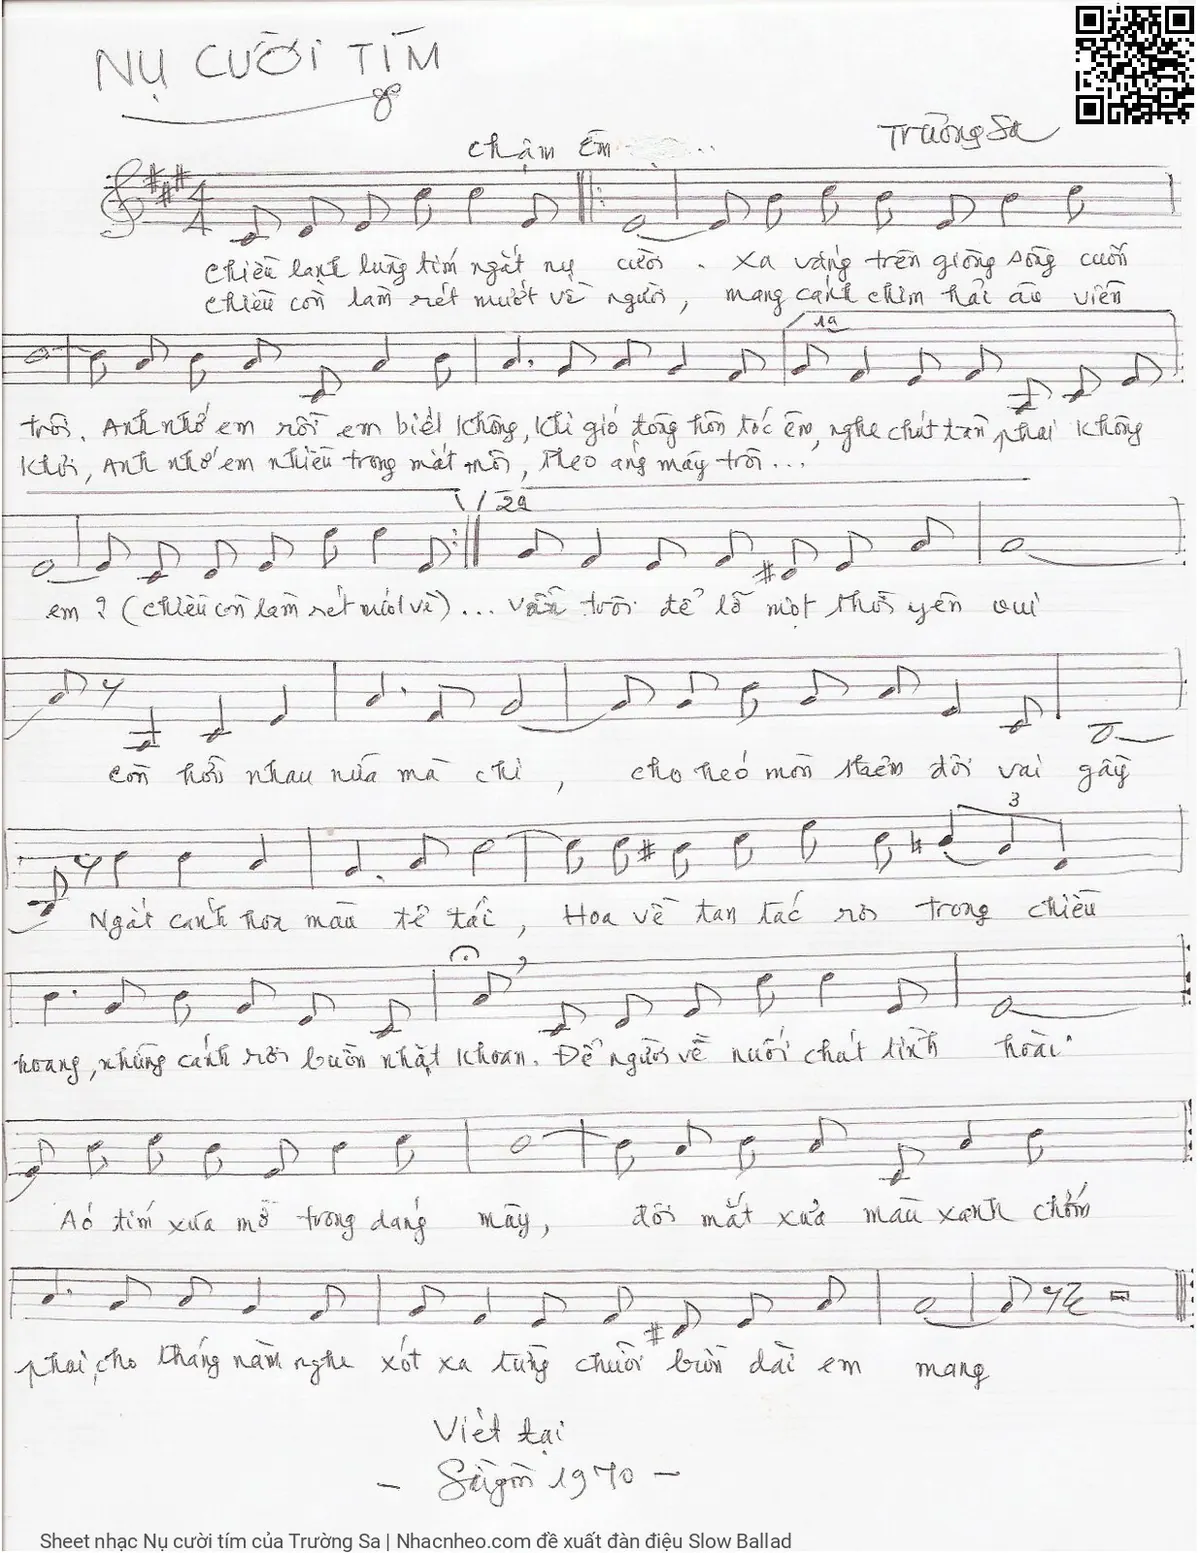 NỤ CƯỜI TÍM
Trường Sa
Chậm Êm
4
4
Chiều lạnh lùng tím ngát nụ cười. Xa vắng trên giòng sông cuốn
Chiều còn làm rét mướt về người, mang cánh chim hải âu viễn
1a
trôi. Anh nhớ em rồi em biết không, khi gió tóc êm, nghe chút tàn phai không
khơi, Anh nhớ em nhiều trong mắt môi, theo áng mây trôi...
2a
em? (Chiều còn làm rét mướt về)... trôi để lỡ một thuở yên vui
còn nhau nữa mà chi, cho héo mòn thêm đôi vai gầy
3
Ngát cánh hoa màu tê tái, Hoa về tan tác rơi trong chiều
hoang, những cánh rơi buồn nhặt khoan. Để người về nuối chút tình hoài
Áo tím xưa mờ trong dáng mây, đôi mắt xưa màu xanh chớm
phai, cho tháng năm nghe xót xa từng chuỗi buồn dài em mang
Viết tại
- Sàigòn 1970 -
Sheet nhạc Nụ cười tím của Trường Sa | Nhacnheo.com đề xuất đàn điệu Slow Ballad